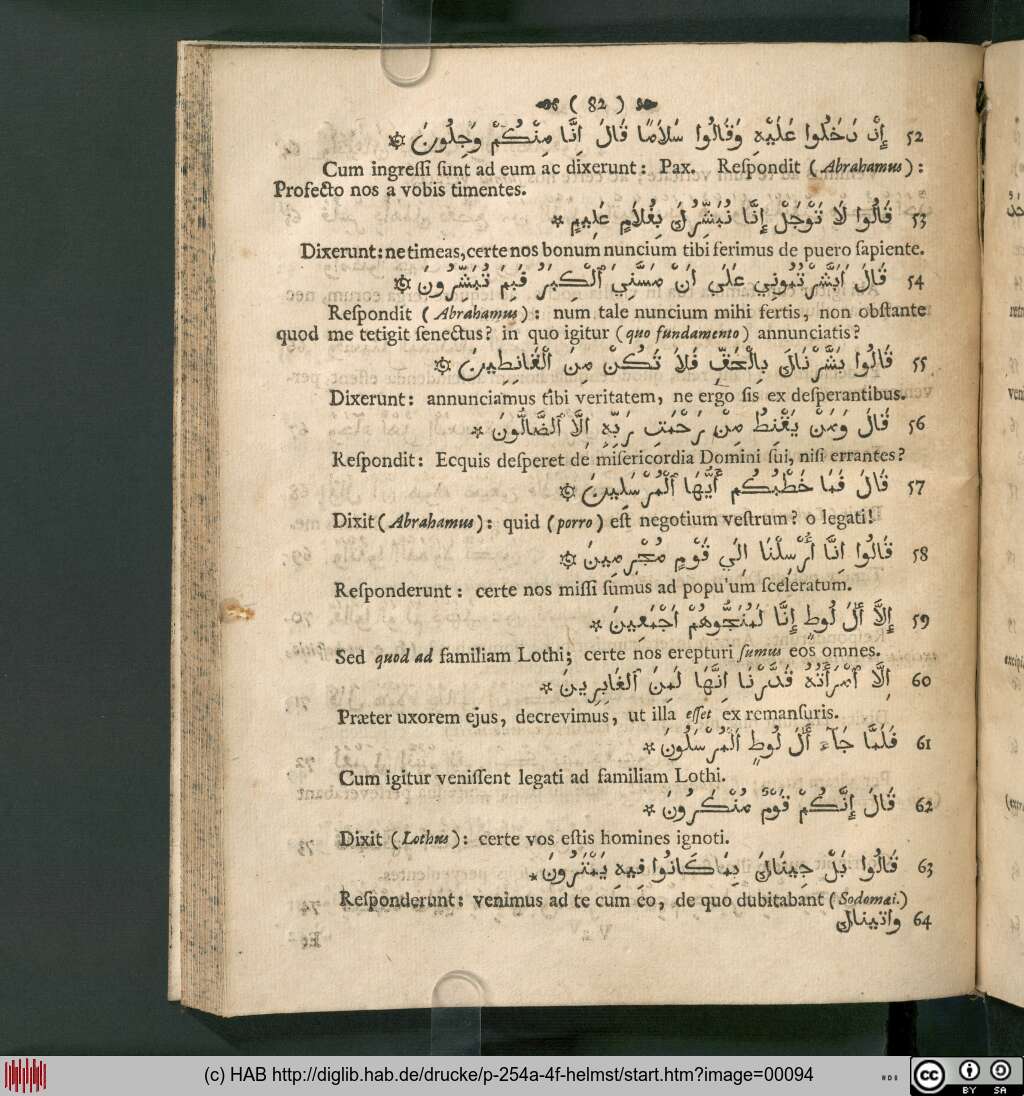 ( 82 )
إِنْ دَخَلُوا عَلَيْهِ وَقَالُوا سَلَامًا قَالَ إِنَّا مِنْكُمْ وَجِلُونَ ۞ 52
Cum ingreſſi ſunt ad eum ac dixerunt: Pax. Reſpondit (Abrahamus):
Profecto nos a vobis timentes.
قَالُوا لَا تَوْجَلْ إِنَّا نُبَشِّرُكَ بِغُلَامٍ عَلِيمٍ * 53
Dixerunt: ne timeas, certe nos bonum nuncium tibi ferimus de puero ſapiente.
قَالَ اَبَشَّرْتُمُونِي عَلَى اَنْ مَسَّنِيَ ٱلْكِبَرُ فَبِمَ تُبَشِّرُونَ ۞ 54
Reſpondit (Abrahamus): num tale nuncium mihi fertis, non obſtante
quod me tetigit ſenectus? in quo igitur (quo fundamento) annunciatis?
قَالُوا بَشَّرْنَاكَ بِالْحَقِّ فَلَا تَكُنْ مِنَ ٱلْقَانِطِينَ ۞ 55
Dixerunt: annunciamus tibi veritatem, ne ergo ſis ex deſperantibus.
قَالَ وَمَنْ يَقْنِطُ مِنْ رَحْمَتِ رَبِّهِ اِلَّا ٱلضَّالُّونَ * 56
Reſpondit: Ecquis deſperet de miſericordia Domini ſui, niſi errantes?
قَالَ فَمَا خَطْبُكُم أَيُّهَا ٱلْمُرْسَلِينَ ۞ 57
Dixit (Abrahamus): quid (porro) eſt negotium veſtrum? o legati!
قَالُوا اِنَّا أُرْسِلْنَا اِلَي قَوْمٍ مُجْرِمِينَ ۞ 58
Reſponderunt: certe nos miſſi ſumus ad popu'um ſceleratum.
إِلَّا آلَ لُوطٍ إِنَّا لَمُنَجُّوهُمْ اَجْمَعِينَ * 59
Sed quod ad familiam Lothi; certe nos erepturi ſumus eos omnes.
اِلَّا ٱمْرَأَتُهُ قَدَّرْنَا اِنَّهَا لَمِنَ ٱلْغَابِرِينَ * 60
Præter uxorem ejus, decrevimus, ut illa eſſet ex remanſuris.
فَلَمَّا جَآءَ آلَ لُوطٍ ٱلْمُرْسَلُونَ * 61
Cum igitur veniſſent legati ad familiam Lothi.
قَالَ إِنَّكُمْ قَوْمٌ مُنْكَرُونَ * 62
Dixit (Lothus): certe vos eſtis homines ignoti.
قَالُوا بَلْ جِينَاكَ بِمَا كَانُوا فِيهِ يَمْتَرُونَ * 63
Reſponderunt: venimus ad te cum eo, de quo dubitabant (Sodomæi.)
واتيناك 64
(c) HAB http://diglib.hab.de/drucke/p-254a-4f-helmst/start.htm?image=00094
cc BY SA